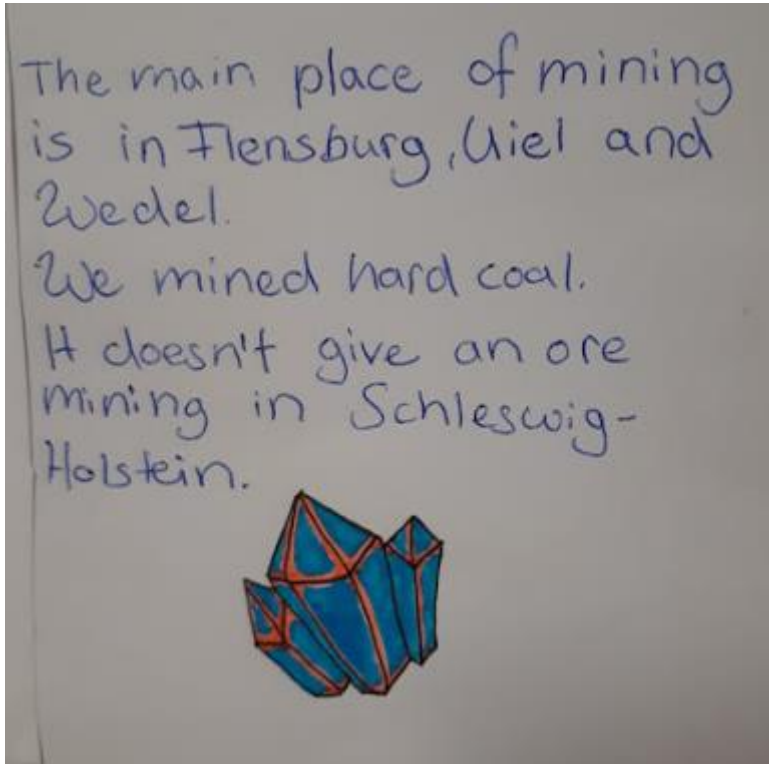 The main place of mining
is in Flensburg, Kiel and
Wedel.
We mined hard coal.
It doesn't give an ore
mining in Schleswig-
Holstein.